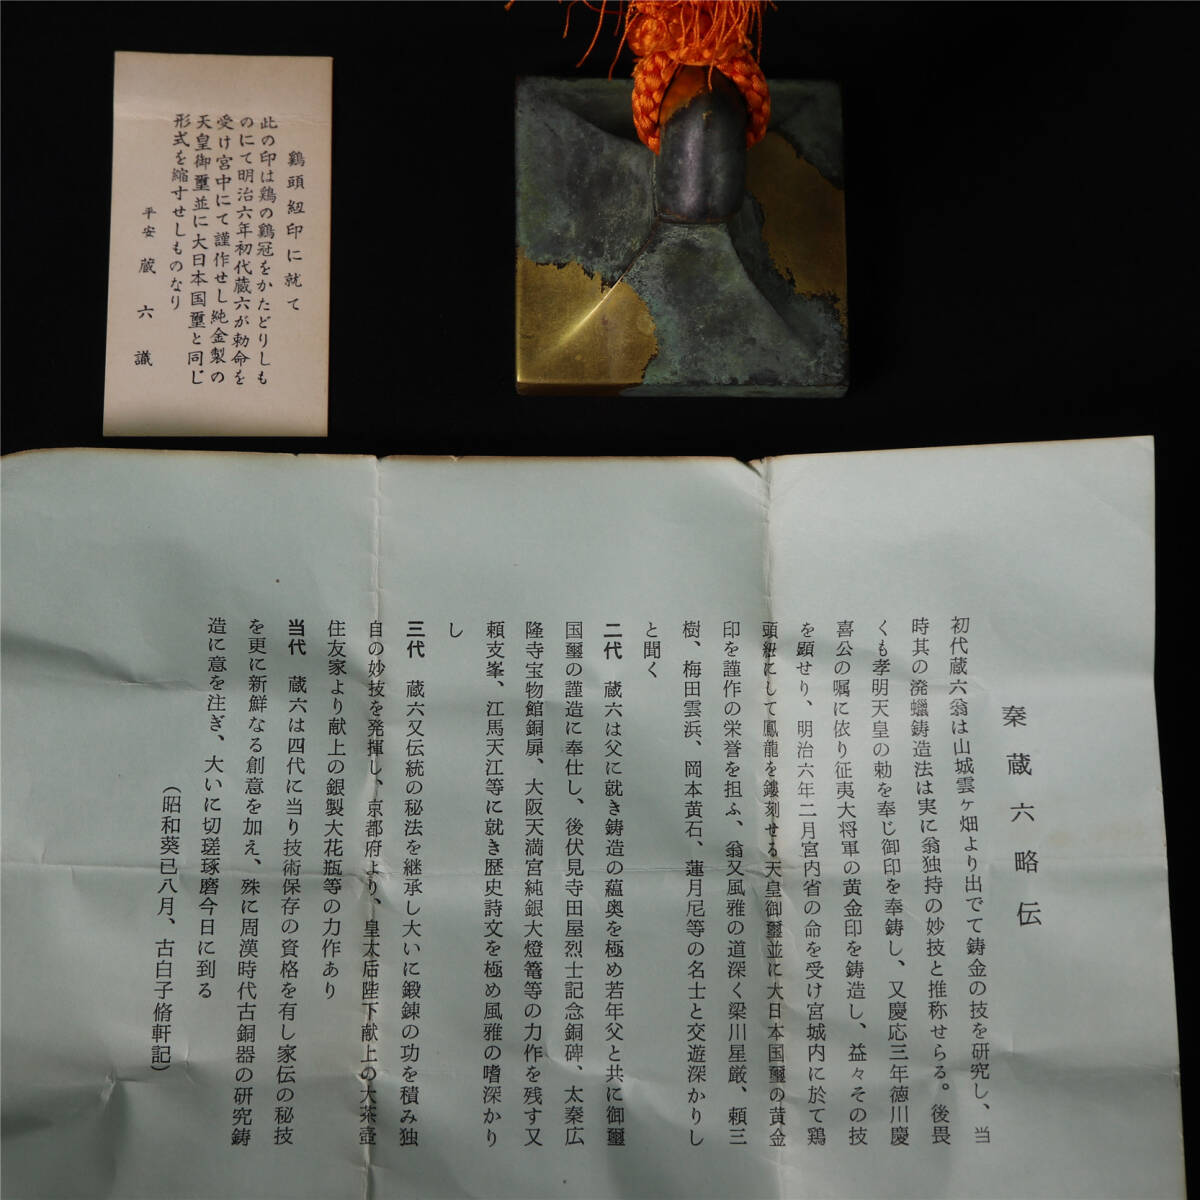 鷄頭紐印に就て
此の印は鶏の鷄冠をかたどりしも
のにて明治六年初代蔵六が勅命を
受け宮中にて謹作せし純金製の
天皇御璽並に大日本国璽と同じ
形式を縮寸せしものなり
平安 蔵六 識
秦蔵六略伝
初代蔵六翁は山城雲ヶ畑より出でて鋳金の技を研究し、当
時其の溌蠟鋳造法は実に翁独持の妙技と推称せらる。後畏
くも孝明天皇の勅を奉じ御印を奉鋳し、又慶応三年徳川慶
喜公の嘱に依り征夷大将軍の黄金印を鋳造し、益々その技
を顕せり、明治六年二月宮内省の命を受け宮城内に於て鶏
頭紐にして鳳龍を鏤刻せる天皇御璽並に大日本国璽の黄金
印を謹作の栄誉を担ふ、翁又風雅の道深く梁川星厳、頼三
樹、梅田雲浜、岡本黄石、蓮月尼等の名士と交遊深かりし
と聞く
二代 蔵六は父に就き鋳造の蘊奥を極め若年父と共に御璽
国璽の謹造に奉仕し、後伏見寺田屋烈士記念銅碑、太秦広
隆寺宝物館銅扉、大阪天満宮純銀大燈篭等の力作を残す又
頼支峯、江馬天江等に就き歴史詩文を極め風雅の嗜深かり
し
三代 蔵六又伝統の秘法を継承し大いに鍛錬の功を積み独
自の妙技を発揮し、京都府より、皇太后陛下献上の大茶壺
住友家より献上の銀製大花瓶等の力作あり
当代 蔵六は四代に当り技術保存の資格を有し家伝の秘技
を更に新鮮なる創意を加え、殊に周漢時代古銅器の研究鋳
造に意を注ぎ、大いに切瑳琢磨今日に到る
(昭和葵已八月、古白子脩軒記)